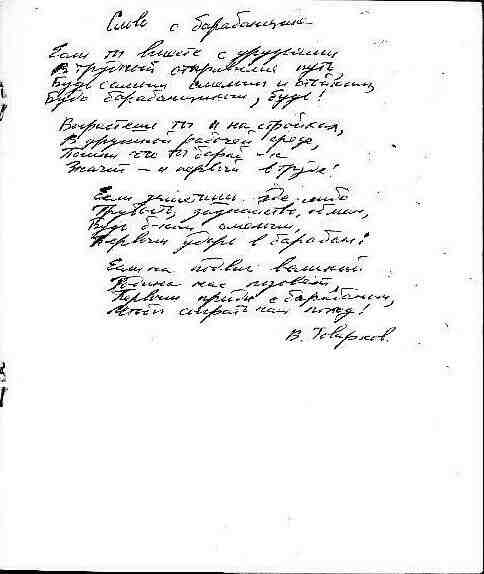 Слово о барабанщике
Если ты вместе с друзьями
В трудный отправился путь,
Будь самым смелым и стойким,
Будь барабанщиком, будь!
ты и на стройках,
В дружной рабочей среде,
Помни что ты бараб-к
Значит – и первый в труде!
Если заметишь где-либо
Трусость, зазнайство, обман,
Будь б-ком смелым,
Первым ударь в барабан!
Если на подвиг великий
Родина нас позовёт,
Первым приди с барабаном,
Чтобы сыграть нам поход!
В. Товарков.